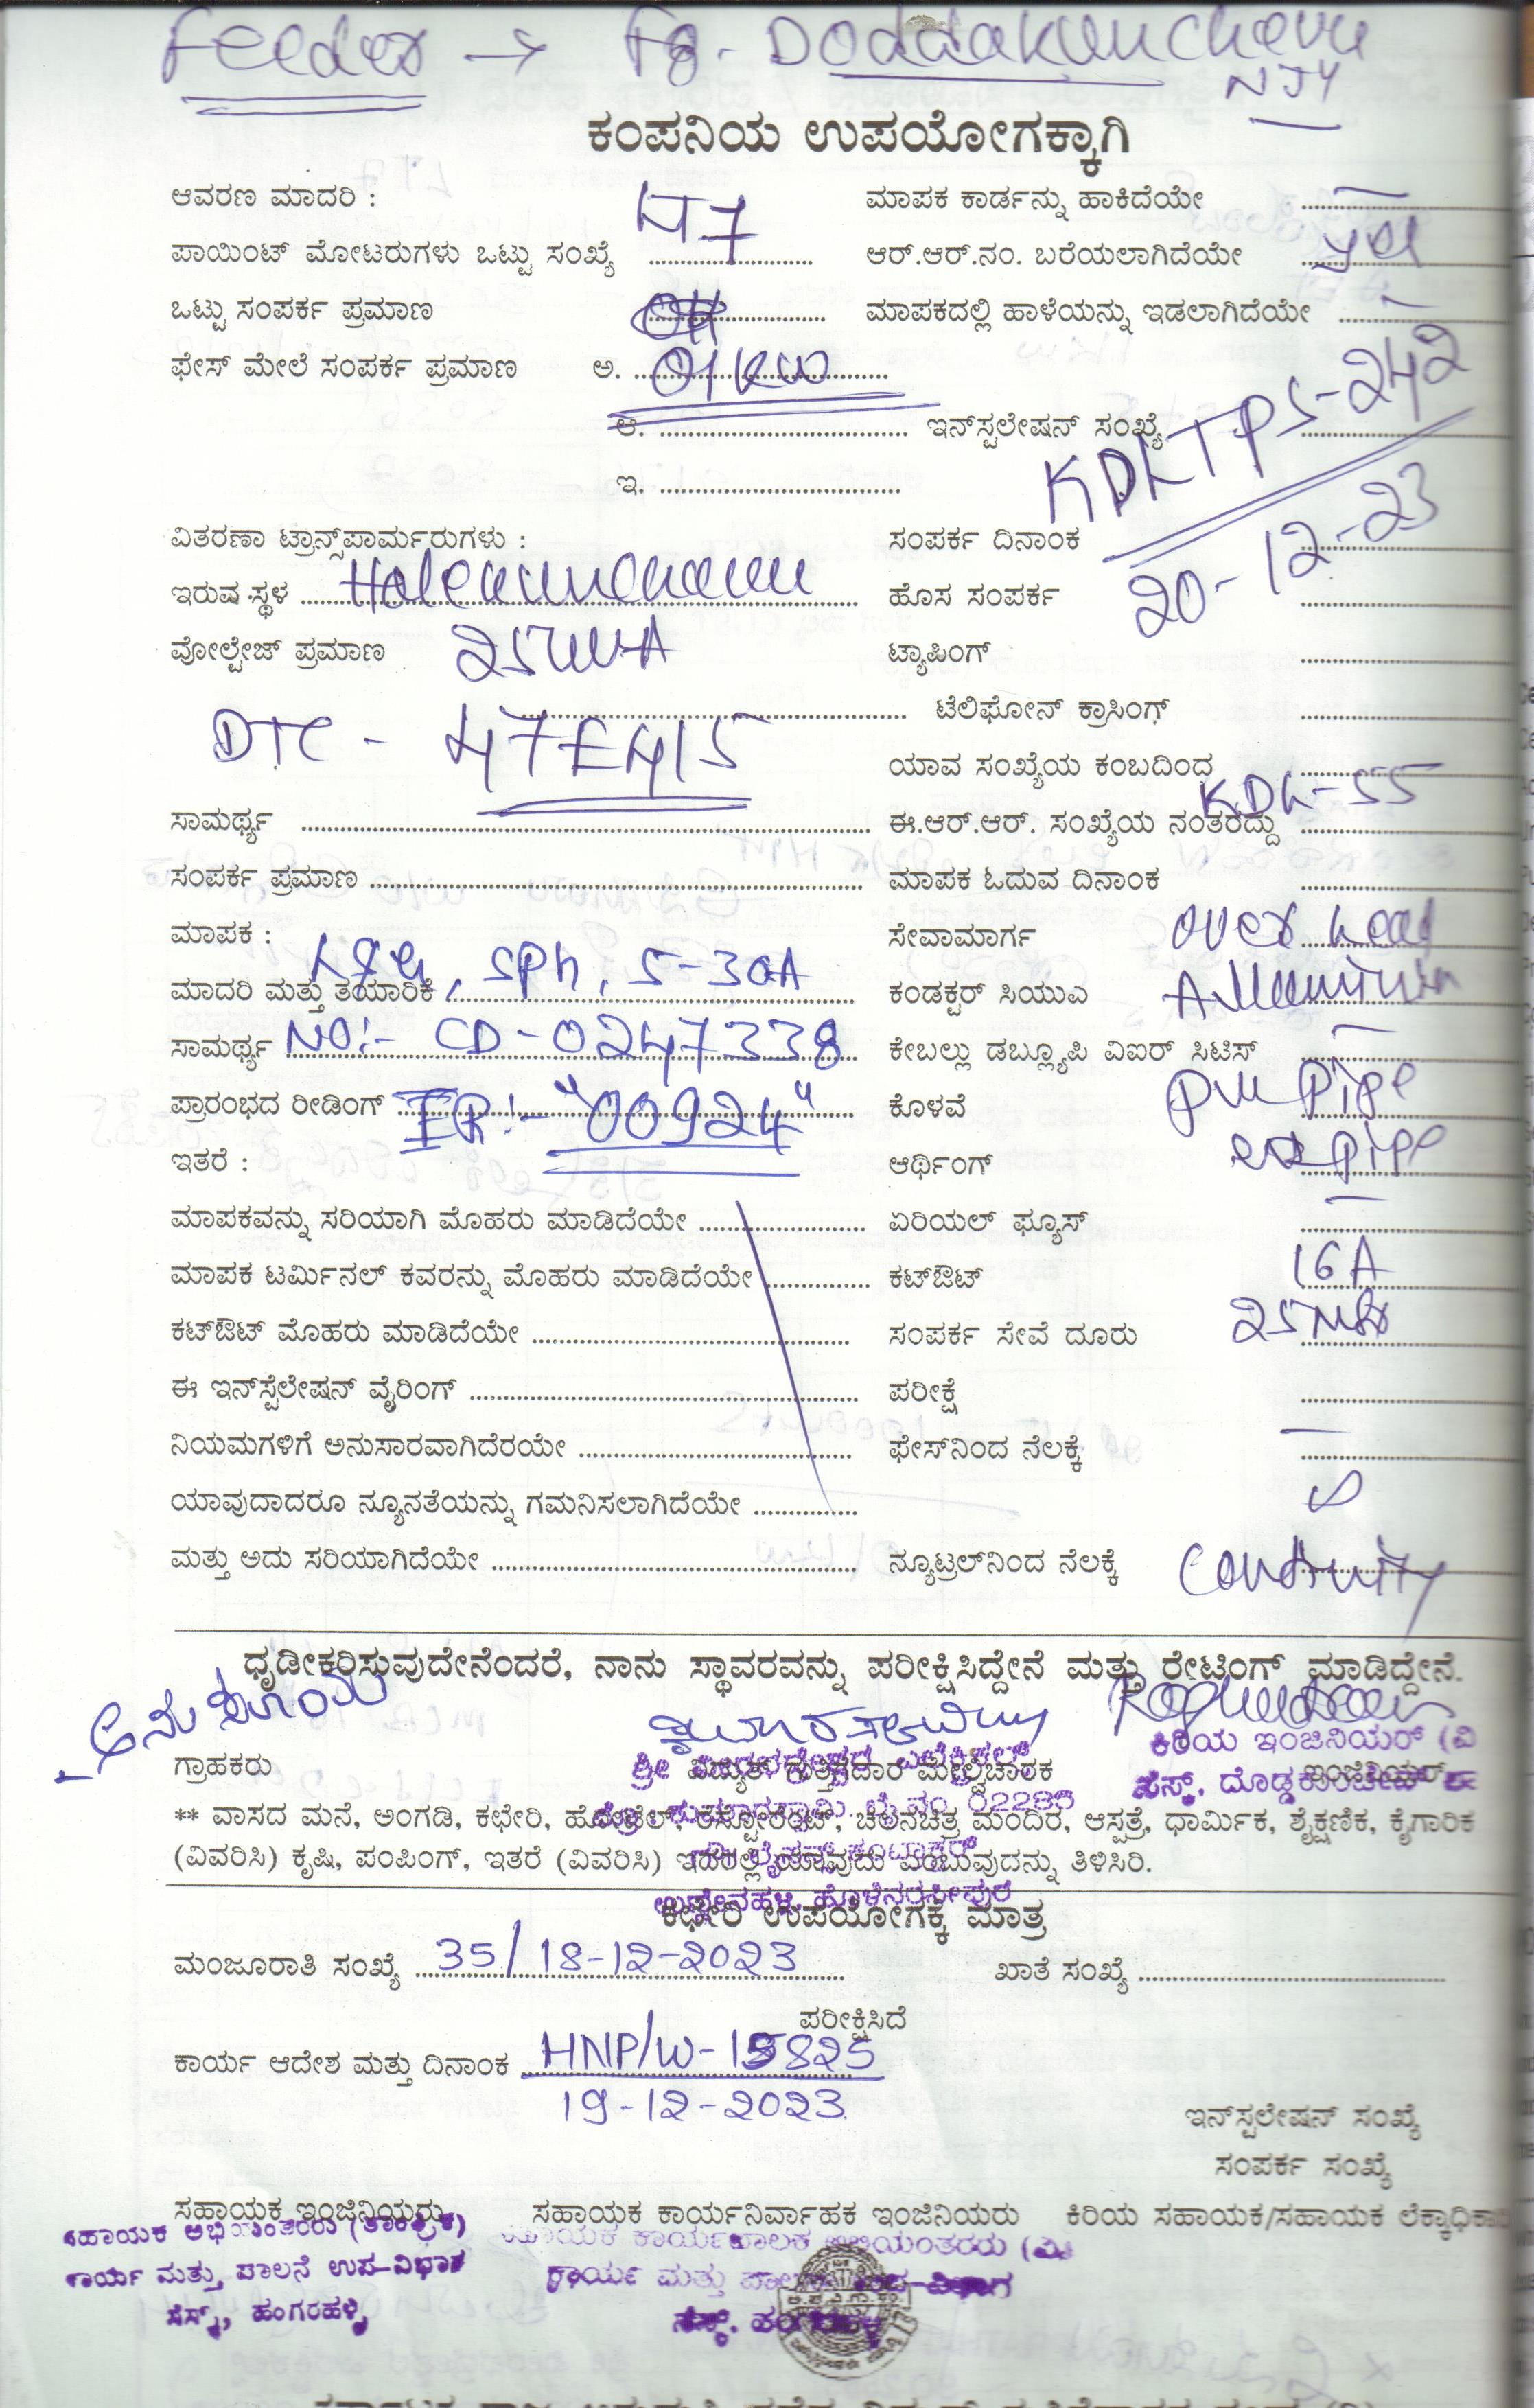 Feeder → F8 - Doddakunchevu
NJY
ಕಂಪನಿಯ ಉಪಯೋಗಕ್ಕಾಗಿ
ಆವರಣ ಮಾದರಿ : ಮಾಪಕ ಕಾರ್ಡನ್ನು ಹಾಕಿದೆಯೇ
ಪಾಯಿಂಟ್ ಮೋಟರುಗಳು ಒಟ್ಟು ಸಂಖ್ಯೆ LT7 ಆರ್.ಆರ್.ನಂ. ಬರೆಯಲಾಗಿದೆಯೇ yes
ಒಟ್ಟು ಸಂಪರ್ಕ ಪ್ರಮಾಣ ಮಾಪಕದಲ್ಲಿ ಹಾಳೆಯನ್ನು ಇಡಲಾಗಿದೆಯೇ
ಫೇಸ್ ಮೇಲೆ ಸಂಪರ್ಕ ಪ್ರಮಾಣ ಅ. 01KW
ಆ. ಇನ್‌ಸ್ಟಲೇಷನ್ ಸಂಖ್ಯೆ KDLTPS-242
ಇ.
ವಿತರಣಾ ಟ್ರಾನ್ಸ್‌ಪಾರ್ಮರುಗಳು : ಸಂಪರ್ಕ ದಿನಾಂಕ 20-12-23
ಇರುವ ಸ್ಥಳ ಹೊಸ ಸಂಪರ್ಕ
ವೋಲ್ಟೇಜ್ ಪ್ರಮಾಣ 25KVA ಟ್ಯಾಪಿಂಗ್
ಟೆಲಿಫೋನ್ ಕ್ರಾಸಿಂಗ್
DTC - 47E415 ಯಾವ ಸಂಖ್ಯೆಯ ಕಂಬದಿಂದ
ಸಾಮರ್ಥ್ಯ ಈ.ಆರ್.ಆರ್. ಸಂಖ್ಯೆಯ ನಂತರದ್ದು KDL-55
ಸಂಪರ್ಕ ಪ್ರಮಾಣ ಮಾಪಕ ಓದುವ ದಿನಾಂಕ
ಮಾಪಕ : ಸೇವಾಮಾರ್ಗ over head
ಮಾದರಿ ಮತ್ತು ತಯಾರಿಕೆ L&G, SPh, 5-30A ಕಂಡಕ್ಟರ್ ಸಿಯುಎ
ಸಾಮರ್ಥ್ಯ NO:- CD-0247338 ಕೇಬಲ್ಲು ಡಬ್ಲ್ಯೂಪಿ ವಿಐರ್ ಸಿಟಿಸ್
ಪ್ರಾರಂಭದ ರೀಡಿಂಗ್ IR:- "00924" ಕೊಳವೆ pvc pipe
ಇತರೆ : ಆರ್ಥಿಂಗ್ pipe
ಮಾಪಕವನ್ನು ಸರಿಯಾಗಿ ಮೊಹರು ಮಾಡಿದೆಯೇ ಏರಿಯಲ್ ಫ್ಯೂಸ್
ಮಾಪಕ ಟರ್ಮಿನಲ್ ಕವರನ್ನು ಮೊಹರು ಮಾಡಿದೆಯೇ ಕಟ್‌ಔಟ್ 16A
ಕಟ್‌ಔಟ್ ಮೊಹರು ಮಾಡಿದೆಯೇ ಸಂಪರ್ಕ ಸೇವೆ ದೂರು 25Mtr
ಈ ಇನ್‌ಸ್ಟೆಲೇಷನ್ ವೈರಿಂಗ್ ಪರೀಕ್ಷೆ
ನಿಯಮಗಳಿಗೆ ಅನುಸಾರವಾಗಿದೆರಯೇ ಫೇಸ್‌ನಿಂದ ನೆಲಕ್ಕೆ
ಯಾವುದಾದರೂ ನ್ಯೂನತೆಯನ್ನು ಗಮನಿಸಲಾಗಿದೆಯೇ ∞
ಮತ್ತು ಅದು ಸರಿಯಾಗಿದೆಯೇ ನ್ಯೂಟ್ರಲ್‌ನಿಂದ ನೆಲಕ್ಕೆ
ಧೃಡೀಕರಿಸುವುದೇನೆಂದರೆ, ನಾನು ಸ್ಥಾವರವನ್ನು ಪರೀಕ್ಷಿಸಿದ್ದೇನೆ ಮತ್ತು ರೇಟಿಂಗ್ ಮಾಡಿದ್ದೇನೆ.
ಕಿರಿಯ ಇಂಜಿನಿಯರ್ (ವಿ
ಗ್ರಾಹಕರು ವಿದ್ಯುತ್ ಗುತ್ತಿಗೆದಾರ ಮೇಲ್ವಿಚಾರಕ ಇಂಜಿನಿಯರ್
** ವಾಸದ ಮನೆ, ಅಂಗಡಿ, ಕಛೇರಿ, ಹೋಟೆಲ್, ರೆಸ್ಟೋರೆಂಟ್, ಚಲನಚಿತ್ರ ಮಂದಿರ, ಆಸ್ಪತ್ರೆ, ಧಾರ್ಮಿಕ, ಶೈಕ್ಷಣಿಕ, ಕೈಗಾರಿಕ
(ವಿವರಿಸಿ) ಕೃಷಿ, ಪಂಪಿಂಗ್, ಇತರೆ (ವಿವರಿಸಿ) ಇದರಲ್ಲಿ ಯಾವುದು ಎಂಬುವುದನ್ನು ತಿಳಿಸಿರಿ.
ಕಛೇರಿ ಉಪಯೋಗಕ್ಕೆ ಮಾತ್ರ
ಮಂಜೂರಾತಿ ಸಂಖ್ಯೆ 35/18-12-2023 ಖಾತೆ ಸಂಖ್ಯೆ
ಪರೀಕ್ಷಿಸಿದೆ
ಕಾರ್ಯ ಆದೇಶ ಮತ್ತು ದಿನಾಂಕ HNP/W-15825
19-12-2023
ಇನ್‌ಸ್ಟಲೇಷನ್ ಸಂಖ್ಯೆ
ಸಂಪರ್ಕ ಸಂಖ್ಯೆ
ಸಹಾಯಕ ಇಂಜಿನಿಯರು ಸಹಾಯಕ ಕಾರ್ಯನಿರ್ವಾಹಕ ಇಂಜಿನಿಯರು ಕಿರಿಯ ಸಹಾಯಕ/ಸಹಾಯಕ ಲೆಕ್ಕಾಧಿಕಾರಿ
ಕಾರ್ಯ ಮತ್ತು ಪಾಲನೆ ಉಪ-ವಿಭಾಗ
ಸೆಸ್ಕ್, ಹಂಗರಹಳ್ಳಿ